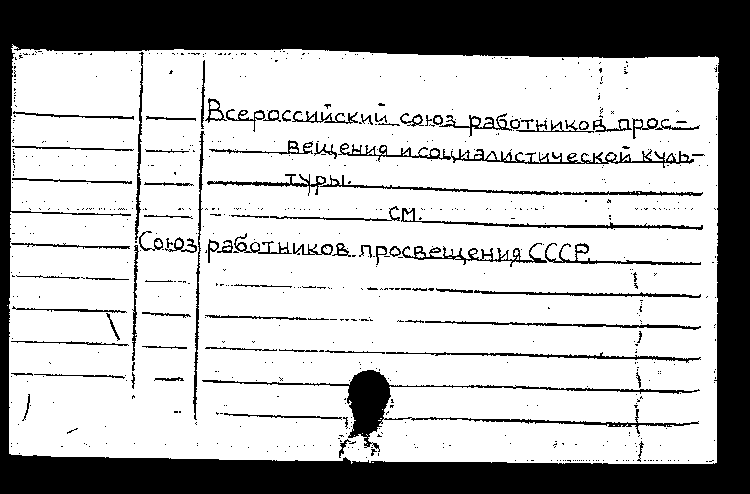 Всероссийский союз работников прос-
вещения и социалистической куль-
туры.
см.
Союз работников просвещения СССР.